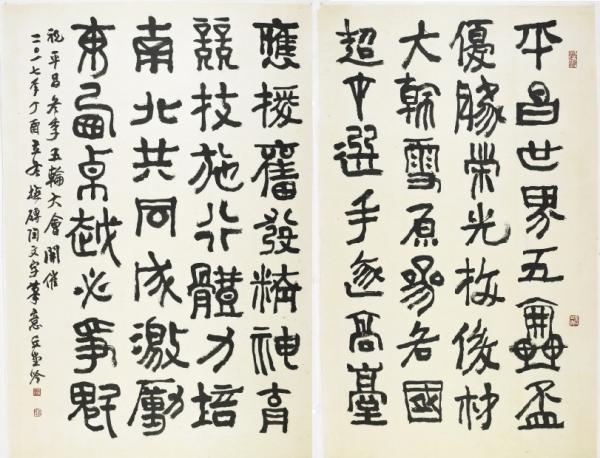 平昌世界五輪盃
優勝榮光俊材
大韓雪原各國
超中選手逐高臺
應援舊發精神育
競技施行體力培
南北共同成激勵
東西卓越必爭魁
祝平昌冬季五輪大會開催
二〇一七年丁酉立冬碑陶文字筆意